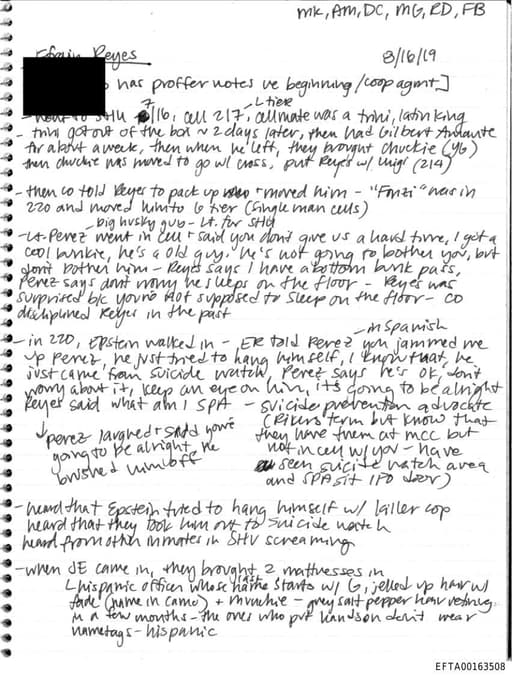 mk, AM, DC, MG, RD, FB
Efrain Reyes 8/16/19
has proffer notes re beginning/coop agmt]
- went to SHU 7/16, cell 217, cellmate was a trini, latin king
L tier
- trini got out of the box ~ 2 days later, then had Gilbert
for about a week, then when he left, they brought chuckie (46)
then chuckie was moved to go w/ cross, put Reyes w/ Luigi (214)
- then co told Reyes to pack up + moved him - "Fonzi" was in
220 and moved him to G tier (single man cells)
- big husky guy - Lt. for SHU
- Lt. Perez went in cell + said you don't give us a hard time, I got a
cool bunkie, he's a old guy. he's not going to bother you, but
don't bother him - Reyes says I have a bottom bunk pass,
Perez says dont worry he sleeps on the floor - Reyes was
surprised b/c you're not supposed to sleep on the floor - CO
disciplined Reyes in the past
- in Spanish
- in 220, Epstein walked in - ER told Perez you jammed me
up Perez, he just tried to hang himself, I know that, he
just came from suicide watch, Perez says he's ok, don't
worry about it, keep an eye on him, it's going to be alright
Reyes said what am I SPA - suicide prevention advocate
(Rikers term but know that
they have them at mcc but
not in cell w/ you - have
seen suicide watch area
and SPA sit IFO door)
Perez laughed + said you're
going to be alright, he
brushed him off
- heard that Epstein tried to hang himself w/ killer cop
heard that they took him out to suicide watch
heard from other inmates in SHU screaming
- when JE came in, they brought 2 mattresses in
L hispanic officer whose last name starts w/ G, jelled up hair w/
fade (name in camo) + munchie - grey salt pepper hair retiring
in a few months - the ones who put hands on don't wear
nametags - hispanic
EFTA00163508